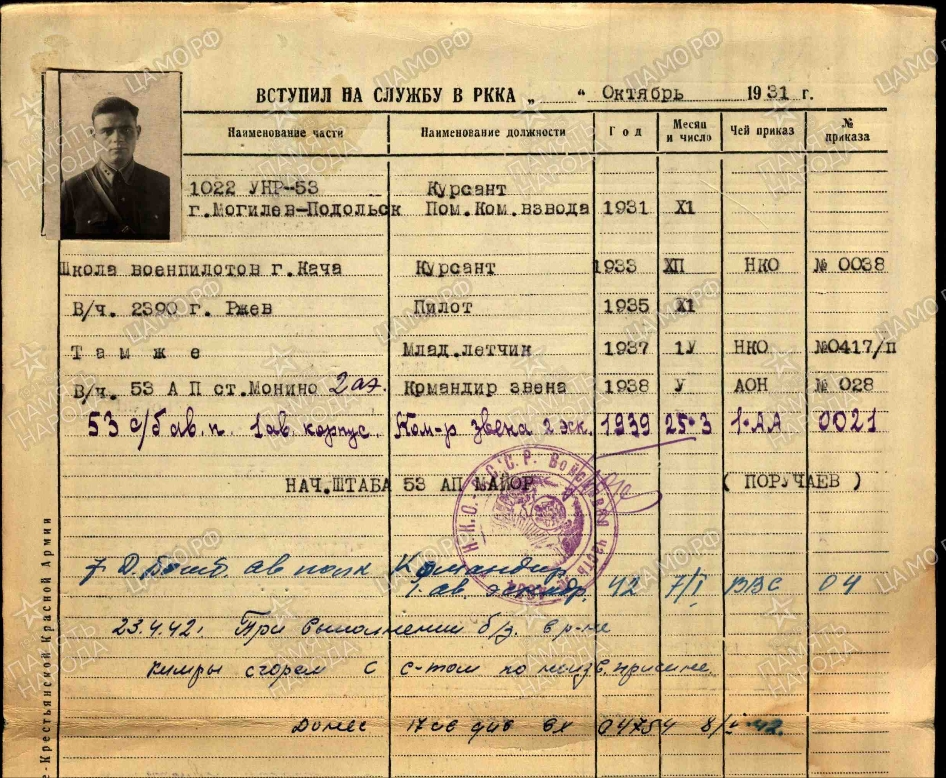 ВСТУПИЛ НА СЛУЖБУ В РККА „ “ Октябрь 1931 г.
Наименование части Наименование должности Год Месяц и число Чей приказ № приказа
1022 УНР-53 Курсант
г.Могилев-Подольск Пом.Ком.взвода 1931 X1
Школа военпилотов г.Кача Курсант 1933 ХП НКО № 0038
В/ч. 2390 г. Ржев Пилот 1935 X1
Т а м ж е Млад.летчик 1937 1У НКО №0417/п
В/ч. 53 А П ст.Монино 2 аэ. Командир звена 1938 У АОН № 028
53 с/б ав. п. 1 ав. корпус. Ком-р звена 2 эск. 1939 25·3 1·АА 0021
НАЧ.ШТАБА 53 АП МАЙОР ( ПОРУЧАЕВ )
7 Д. бомб. ав полк Командир
1 ав. эскадр. 42 7/I ВВС 04
23.4.42. При выполнении б/з. в р-не
Кимры сгорел с с-том по неизв. причине.
Донес 17 ав див вх 04754 8/ 42.
Н.К.О.-С.С.Р. Войсковая часть
-Крестьянской Красной Армии
ПАМЯТЬ НАРОДА
ЦАМО РФ